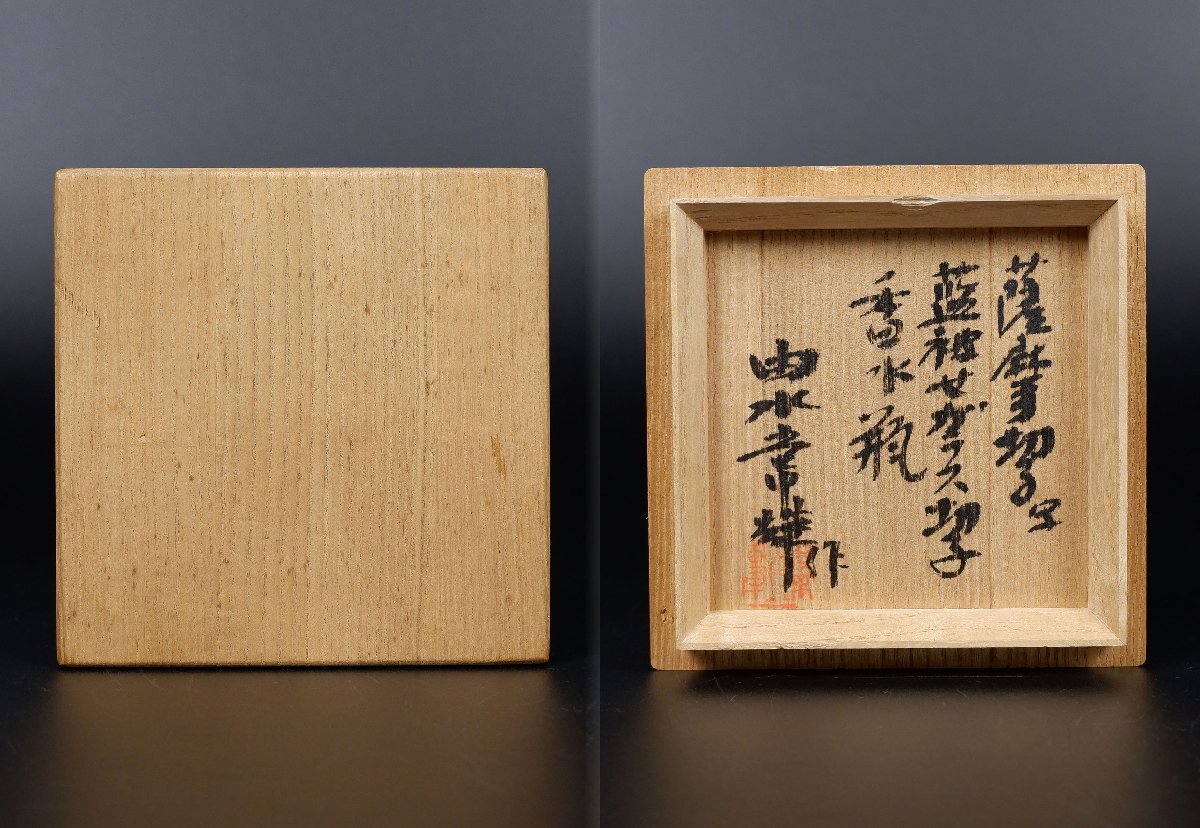 薩摩切子写
藍被せガラス切子
香水瓶
由水常雄作